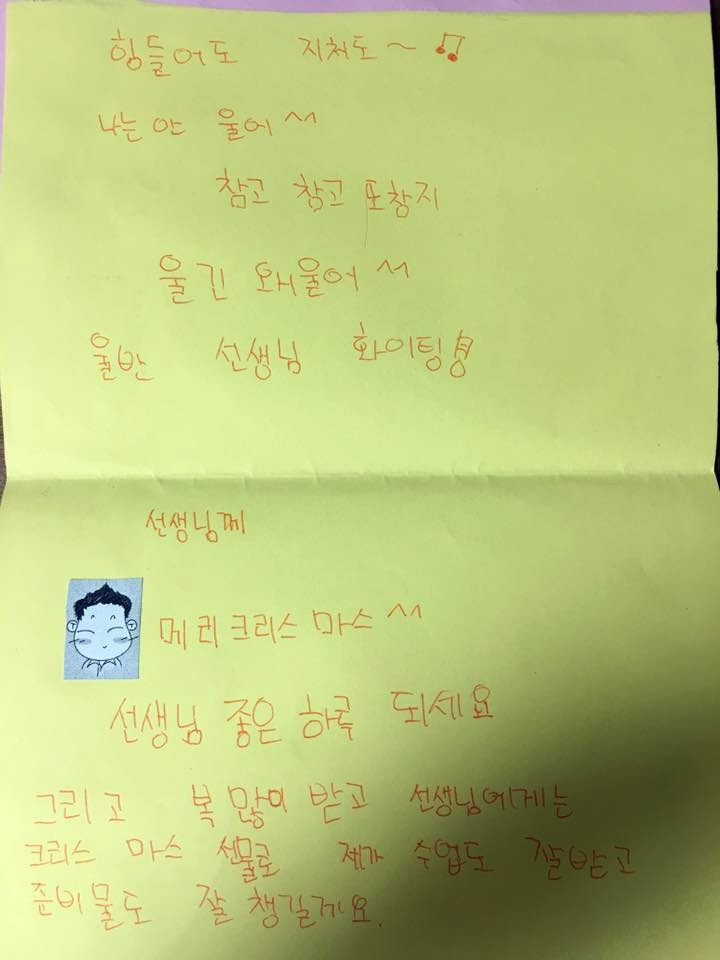 힘들어도 지쳐도~
나는 안 울어^^
참고 참고 또참지
울긴 왜울어^^
울반 선생님 화이팅
선생님께
메리크리스 마스^^
선생님 좋은 하루 되세요
그리고 복 많이 받고 선생님에게는
크리스 마스 선물로 제가 수업도 잘받고
준비물도 잘 챙길게요.